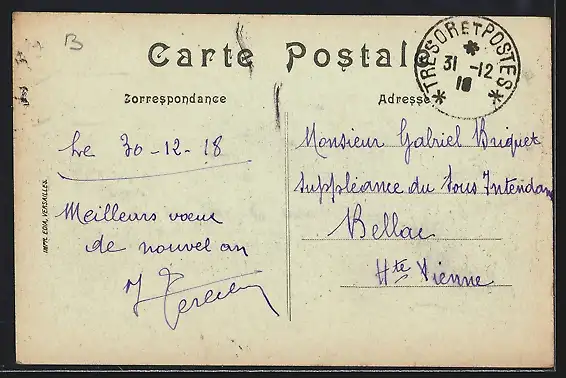 B
Carte Postale
TRESOR ET POSTES
31 -12
18
Correspondance
Adresse
Le 30-12-18
Meilleurs vœux
de nouvel an
Monsieur Gabriel Buquet
Suppléance du Sous Intendant
Bellac
Hte Vienne
IMPR. EDIA, VERSAILLES.